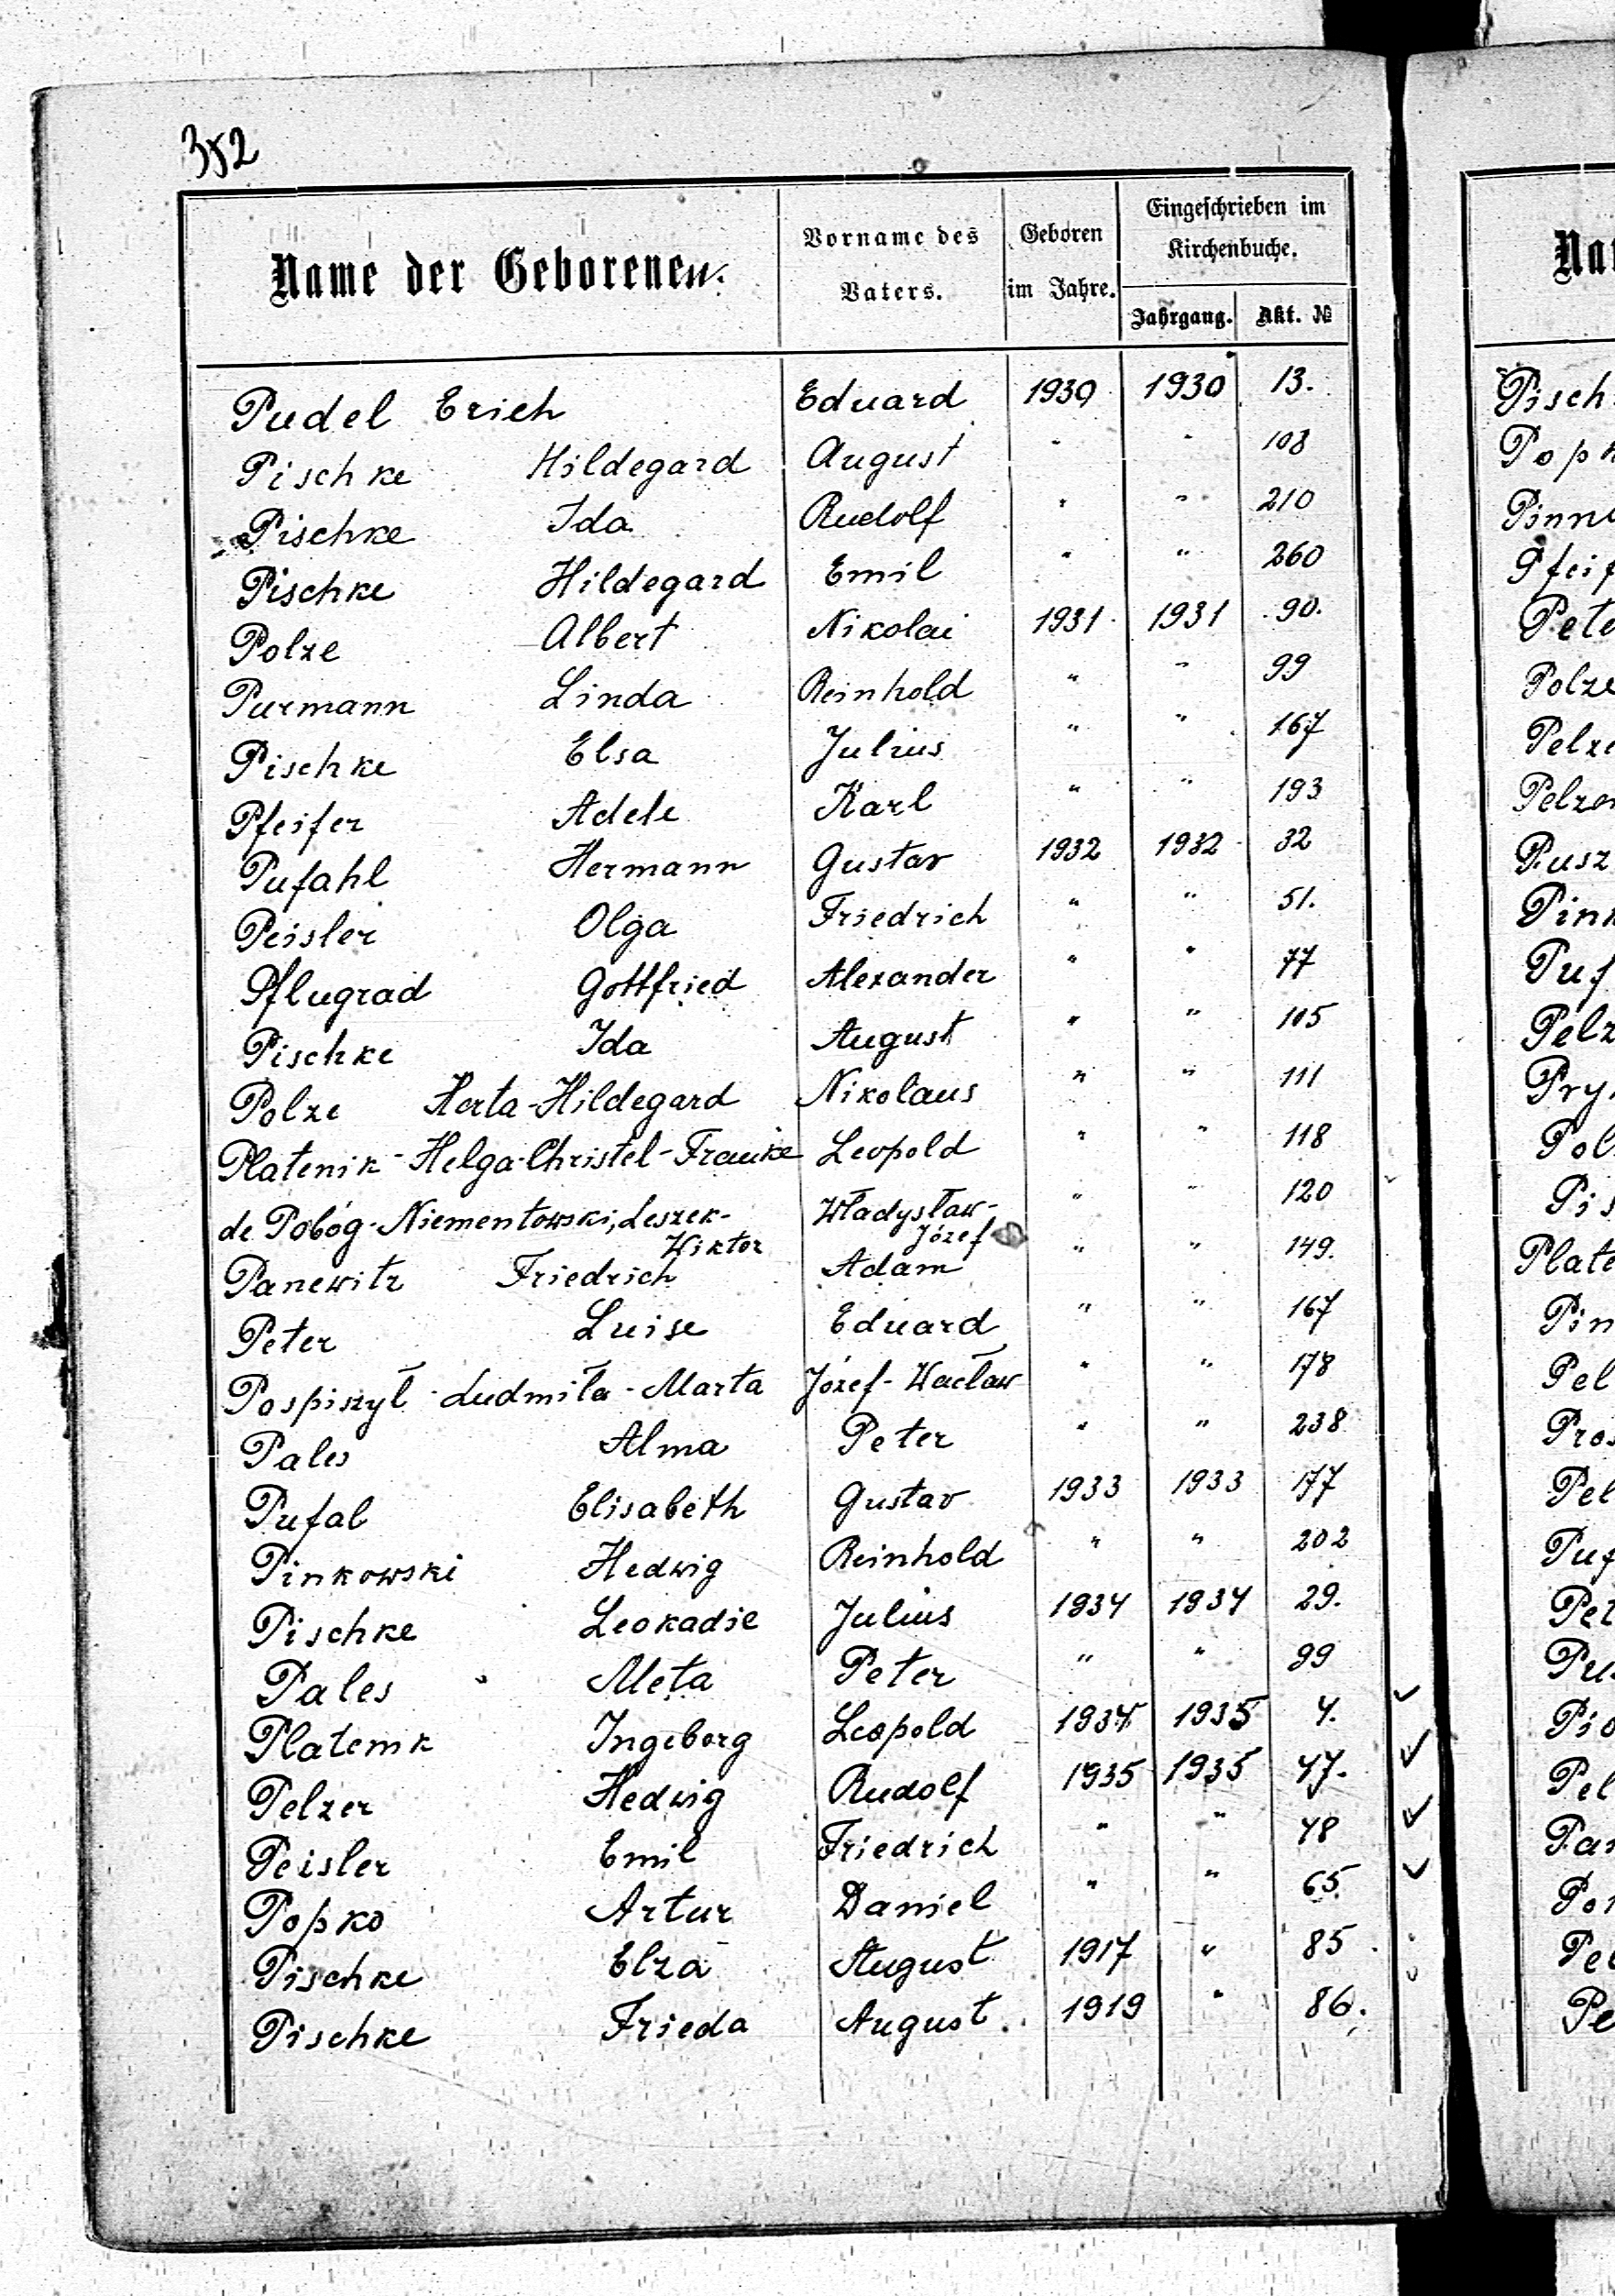 352
Name der Geborenen.
Vorname des Vaters.
Geboren im Jahre.
Eingeschrieben im Kirchenbuche.
Jahrgang. Akt. №
Pudel Erich Eduard 1930 1930 13.
Pischke Hildegard August " " 108
Pischke Ida Rudolf " " 210
Pischke Hildegard Emil " " 260
Polze Albert Nikolai 1931 1931 90.
Purmann Linda Reinhold " " 99
Pischke Elsa Julius " " 167
Pfeifer Adele Karl " " 193
Pufahl Hermann Gustav 1932 1932 32
Peisler Olga Friedrich " " 51.
Pflugrad Gottfried Alexander " " 77
Pischke Ida August " " 105
Polze Herta-Hildegard Nikolaus " " 111
Platenik - Helga-Christel-Frauke Leopold " " 118
de Pobóg-Niementowski, Leszek- Władysław- " " 120
Wiktor Józef
Panewitz Friedrich Adam " " 149.
Peter Luise Eduard " " 167
Pospiszył - Ludmiła - Marta Józef-Wacław " " 178
Pales Alma Peter " " 238
Pufal Elisabeth Gustav 1933 1933 177
Pinkowski Hedwig Reinhold " " 202
Pischke Leokadie Julius 1934 1934 29.
Pales Meta Peter " " 99
Platenik Ingeborg Leopold 1934 1935 4.
Pelzer Hedwig Rudolf 1935 1935 47.
Peisler Emil Friedrich " " 48
Popko Artur Daniel " " 65
Pischke Elza August 1917 " 85
Pischke Frieda August. 1919 " 86.